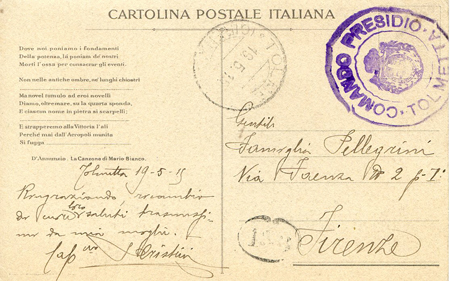 CARTOLINA POSTALE ITALIANA
Dove noi poniamo i fondamenti
Della potenza, là poniam de' nostri
Morti l'ossa per consacrar gli eventi.
Non nelle antiche ombre, ne' lunghi chiostri
Ma novel romuio ad eroi novelli
Diamo, oltremare, su la quarta sponda,
E ciascun nome in pietra si scarpelli.
E strapperemo alla Vittoria l'ali
Perchè mai dall'Acropoli munita
Si fugga
D'Annunzio. La Canzone di Mario Bianco.
Tolmetta 19-5-15
Ringraziando ricambio
di cuore loro saluti
da mia moglie.
COMANDO PRESIDIO · TOLMETTA
Gentile
Famiglia Pellegrini
Via Firenza N° 2 p-1°
Firenze